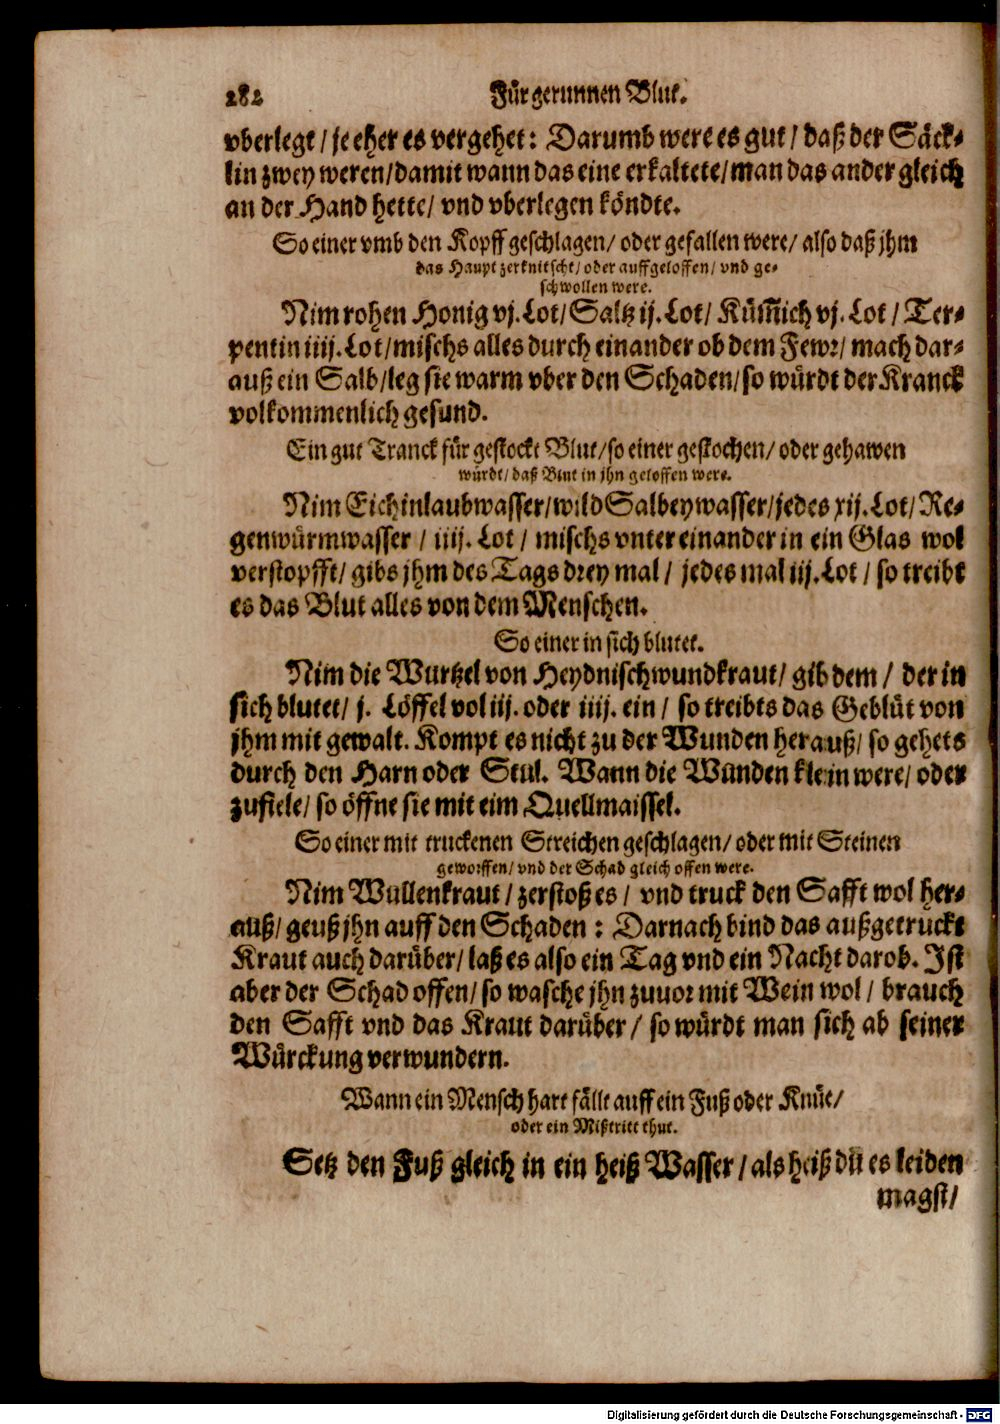 282 Für gerunnen Blut.
vberlegt / je eher es vergehet: Darumb were es gut / daß der Säck-
lin zwey weren / damit wann das eine erkaltete / man das ander gleich
an der Hand hette / vnd vberlegen köndte.
So einer vmb den Kopff geschlagen / oder gefallen were / also daß jhm
das Haupt zerknitscht / oder auffgeloffen / vnd ge-
schwollen were.
Nim rohen Honig vj. Lot / Saltz ij. Lot / Küm̃ich vj. Lot / Ter-
pentin iiij. Lot / mischs alles durch einander ob dem Fewr / mach dar-
auß ein Salb / leg sie warm vber den Schaden / so würdt der Kranck
volkommenlich gesund.
Ein gut Tranck für gestockt Blut / so einer gestochen / oder gehawen
würdt / daß Blut in jhn geloffen were.
Nim Eichinlaubwasser / wild Salbeywasser / jedes xij. Lot / Re-
genwürmwasser / iiij. Lot / mischs vnter einander in ein Glas wol
verstopfft / gibs jhm des Tags drey mal / jedes mal iij. Lot / so treibt
es das Blut alles von dem Menschen.
So einer in sich blutet.
Nim die Wurtzel von Heydnischwundkraut / gib dem / der in
sich blutet / j. Löffel vol iij. oder iiij. ein / so treibts das Geblüt von
jhm mit gewalt. Kompt es nicht zu der Wunden herauß / so gehets
durch den Harn oder Stul. Wann die Wunden klein were / oder
zufiele / so öffne sie mit eim Quellmaissel.
So einer mit truckenen Streichen geschlagen / oder mit Steinen
geworffen / vnd der Schad gleich offen were.
Nim Wullenkraut / zerstoß es / vnd truck den Safft wol her-
auß / geuß jhn auff den Schaden : Darnach bind das außgetruckt
Kraut auch darüber / laß es also ein Tag vnd ein Nacht darob. Ist
aber der Schad offen / so wasche jhn zuuor mit Wein wol / brauch
den Safft vnd das Kraut darüber / so würdt man sich ab seiner
Würckung verwundern.
Wann ein Mensch hart fällt auff ein Fuß oder Knüe /
oder ein Mißtritt thut.
Setz den Fuß gleich in ein heiß Wasser / als heiß du es leiden
magst /
Digitalisierung gefördert durch die Deutsche Forschungsgemeinschaft - DFG